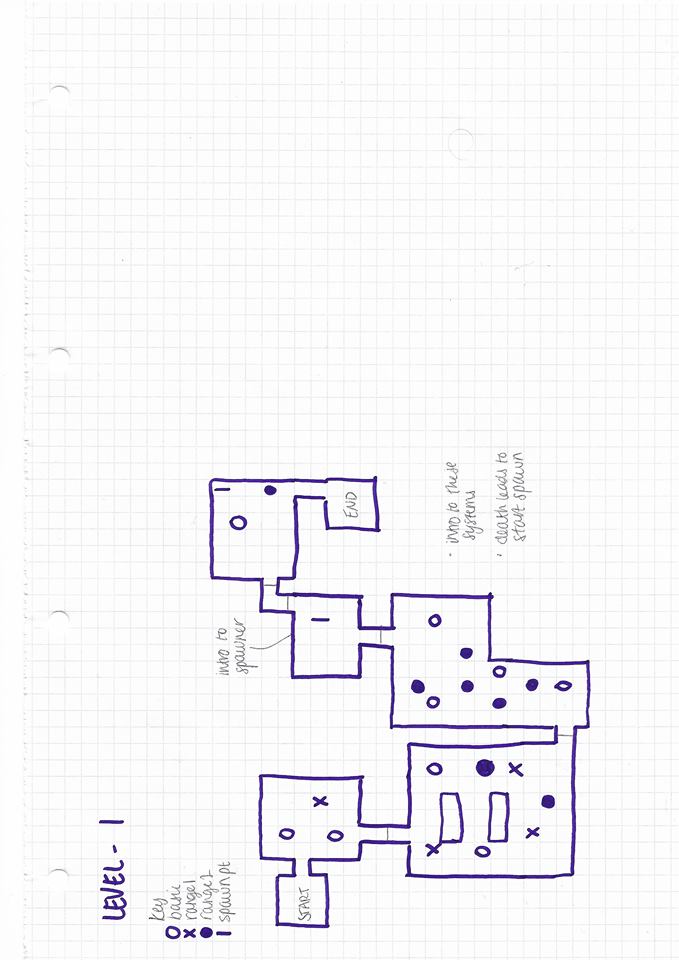 LEVEL - 1
key
O basic
x range1
● range2
| spawn pt
intro to
spawner
START
END
· intro to these
systems
· death leads to
start spawn